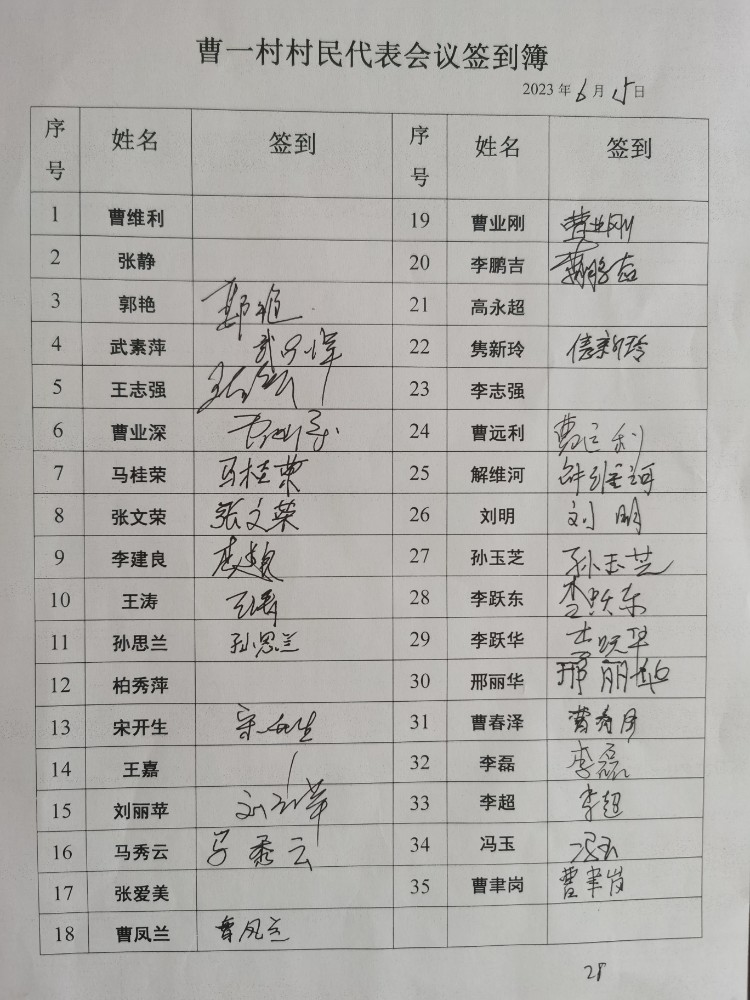 曹一村村民代表会议签到簿
2023年6月15日
序号 姓名 签到 序号 姓名 签到
1 曹维利 19 曹业刚 曹业刚
2 张静 20 李鹏吉
3 郭艳 郭艳 21 高永超
4 武素萍 22 隽新玲
5 王志强 23 李志强
6 曹业深 24 曹远利 曹远利
7 马桂荣 马桂荣 25 解维河 解维河
8 张文荣 张文荣 26 刘明 刘明
9 李建良 27 孙玉芝 孙玉芝
10 王涛 王涛 28 李跃东 李跃东
11 孙思兰 孙思兰 29 李跃华 李跃华
12 柏秀萍 30 邢丽华 邢丽华
13 宋开生 宋开生 31 曹春泽
14 王嘉 32 李磊 李磊
15 刘丽苹 刘丽苹 33 李超 李超
16 马秀云 马秀云 34 冯玉 冯玉
17 张爱美 35 曹聿岗 曹聿岗
18 曹凤兰 曹凤兰
28